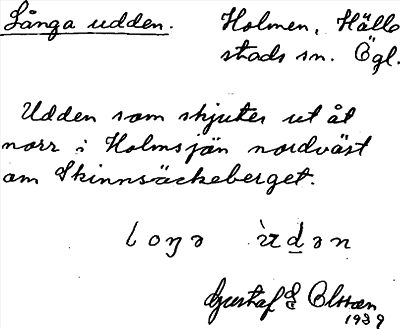 Långa udden. Holmen, Hällestads sn. Ögl.
Udden som skjuter ut åt
norr i Holmsjön nordväst
om Skinnsäckeberget.
loŋə ùdən
Gustaf E Olsson
1939